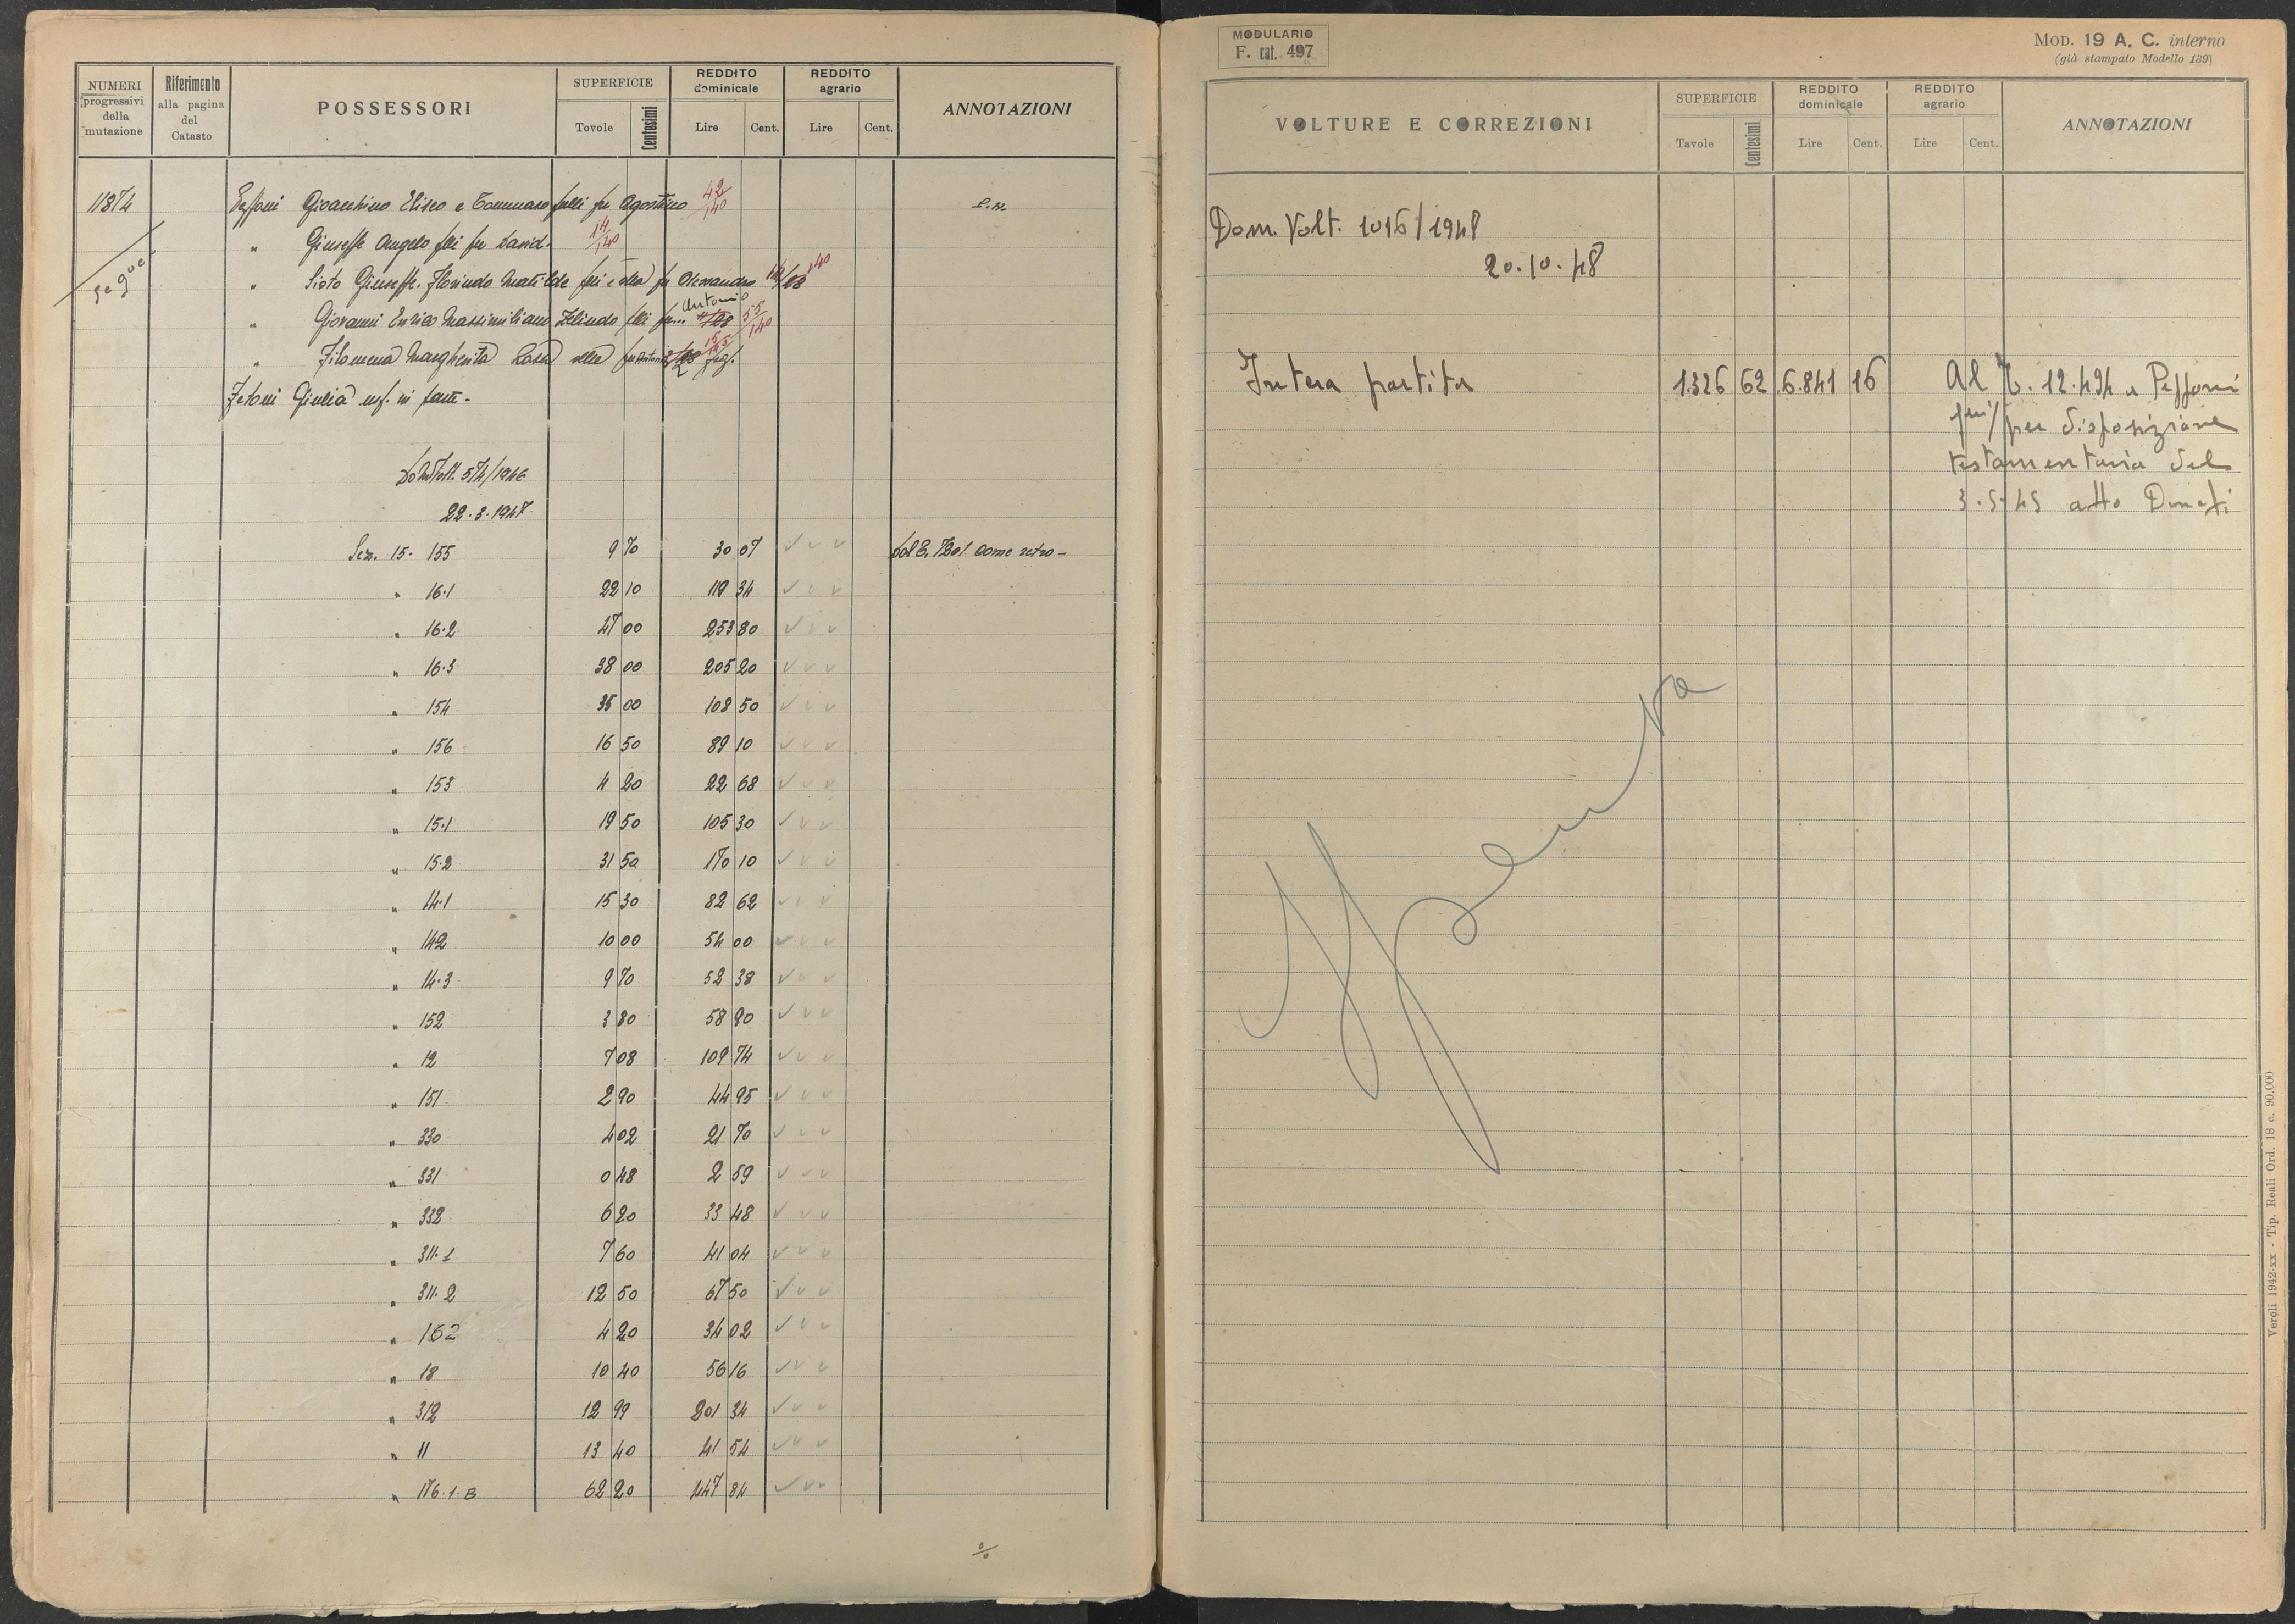 NUMERI progressivi della mutazione
Riferimento alla pagina del Catasto
POSSESSORI
SUPERFICIE
Tavole Centesimi
REDDITO dominicale
Lire Cent.
REDDITO agrario
Lire Cent.
ANNOTAZIONI
11874 Gioacchino Eliseo e Tommaso f.lli fu Agostino 42/140
" Giuseppe Angelo f.lli fu David 14/140
segue
" Sisto Giuseppe Florindo Matilde f.lli e s.lla fu Alessandro 14/140
" Giovanni Enrico Massimiliano Zelindo f.lli fu... Antonio 55/140
" Filomena Margherita Rosa s.lle fu Antonio
Giulia usf. in parte
Dom. Volt. 574/1946
22.3.1947
Sez. 15. 155 9 70 30 07 Dal C. 7201 come retro
" 16.1 22 10 119 34
" 16.2 47 00 253 80
" 16.3 38 00 205 20
" 154 35 00 108 50
" 156 16 50 89 10
" 153 4 20 22 68
" 15.1 19 50 105 30
" 15.2 31 50 170 10
" 14.1 15 30 82 62
" 14.2 10 00 54 00
" 14.3 9 70 52 38
" 152 3 80 58 90
" 12 7 08 109 74
" 151 2 90 44 95
" 330 4 02 21 70
" 331 0 48 2 59
" 332 6 20 33 48
" 311.1 7 60 41 04
" 311.2 12 50 67 50
" 162 4 20 34 02
" 18 10 40 56 16
" 312 12 99 201 34
" 11 13 40 41 54
" 176.1.B 62 20 447 84
%
MODULARIO
F. cat. 497
MOD. 19 A. C. interno
(già stampato Modello 139)
VOLTURE E CORREZIONI
SUPERFICIE
Tavole Centesimi
REDDITO dominicale
Lire Cent.
REDDITO agrario
Lire Cent.
ANNOTAZIONI
Dom. Volt. 1016/1948
20.10.48
Intera partita 1.326 62 6.841 16 Al C. 12.494 a Peffoni
per disposizione
testamentaria del
3.5.45 atto Donati
Spenta
Veroli 1942-XX - Tip. Reali Ord. 18 c. 90.000